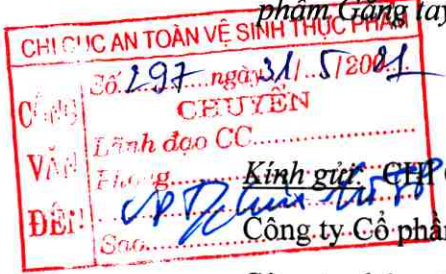 phẩm Găng tay
CHI CỤC AN TOÀN VỆ SINH THỰC PHẨM
CÔNG VĂN ĐẾN
Số 297 ngày 31/5/2021
CHUYỂN
Lãnh đạo CC
Phòng
Kính gửi: CHI
Sao
Công ty Cổ phần